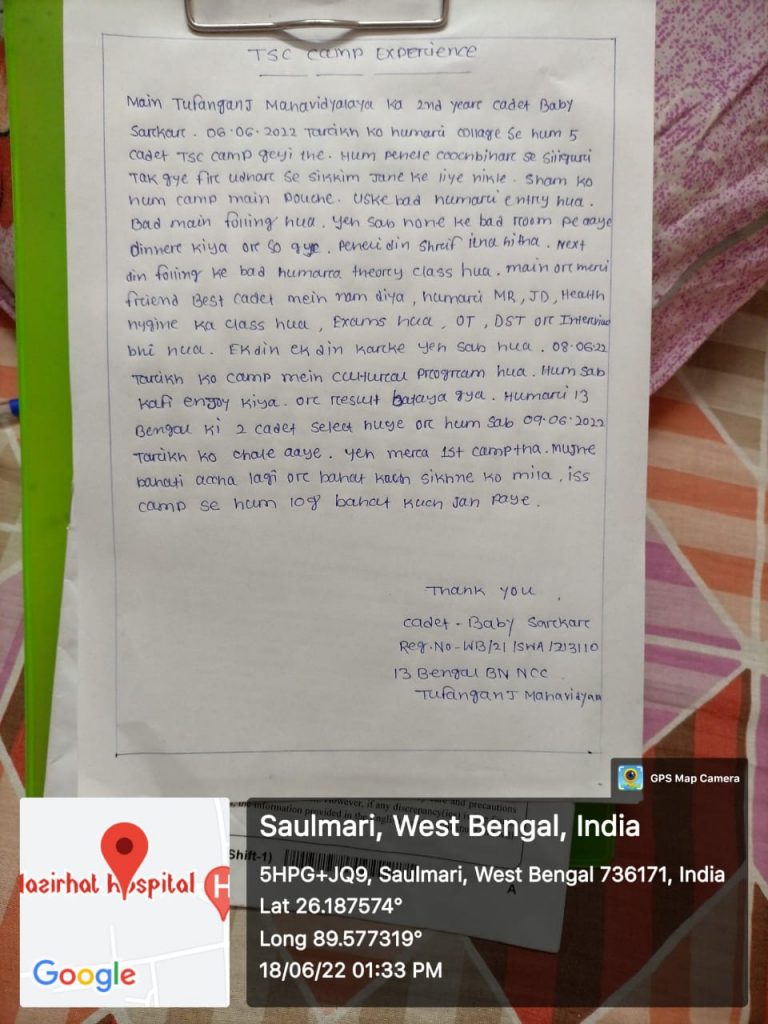 TSC Camp Experience
Main Tufanganj Mahavidyalaya ka 2nd year cadet Baby
Sarkar. 06.06.2022 Tarikh ko humari collage se hum 5
cadet TSC camp geyi the. Hum pehele coochbihar se siliguri
Tak gye fir udhar se sikkim jane ke liye nikle. Sham ko
hum camp main pouche. Uske bad humari entry hua.
Bad main folling hua. Yeh sab hone ke bad room pe aaye
dinner kiya or so gye. Peheli din Shrif itna hi tha. Next
din folling ke bad humara theory class hua. main or meri
friend Best cadet mein nam diya, humari MR, JD, Health
hygine ka class hua, Exams hua, OT, DST or Interview
bhi hua. Ek din ek din karke yeh sab hua. 08.06.22
Tarikh ko camp mein cultural program hua. Hum sab
kafi enjoy kiya. or result bataya gya. Humari 13
Bengal ki 2 cadet select huye or hum sab 09.06.2022
Tarikh ko chale aaye. Yeh mera 1st camp tha. Mujhe
bahati accha lagi or bahat kuch sikhne ko mila, iss
camp se hum log bahat kuch jan paye.
Thank you.
Cadet - Baby Sarkar
Reg.No-WB/21/SWA/213110
13 Bengal BN NCC.
Tufanganj Mahavidyaa
GPS Map Camera
the information provided in the
However, if any discrepancy
and precautions
Shift-1)
A
Saulmari, West Bengal, India
5HPG+JQ9, Saulmari, West Bengal 736171, India
Lat 26.187574°
Long 89.577319°
18/06/22 01:33 PM
Nazirhat hospital
H
Google